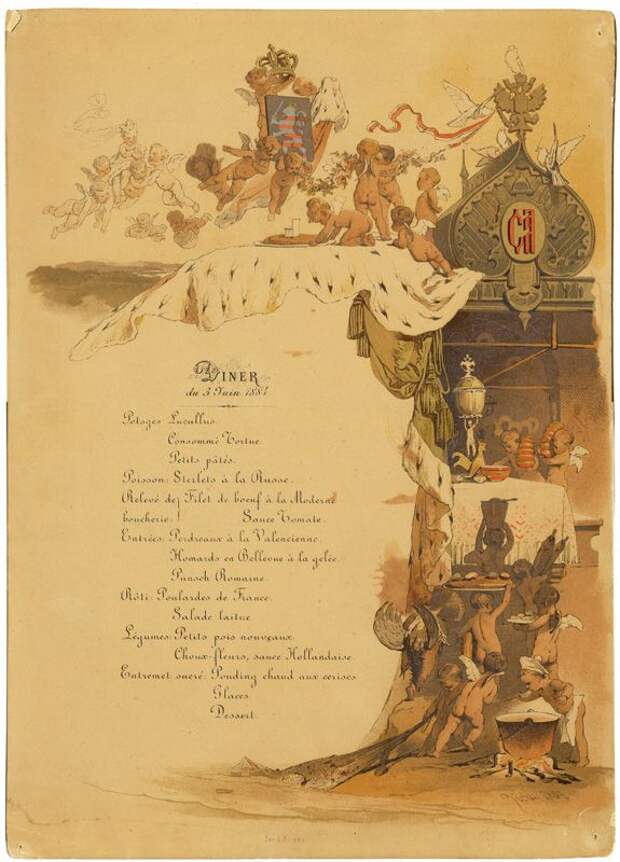 DINER
du 3 Juin 1884
Potages Lucullus.
Consommé Tortue.
Petits pâtés.
Poisson: Sterlets à la Russe.
Relevé de Filet de boeuf à la Moderne
boucherie: Sauce Tomate.
Entrées: Perdreaux à la Valencienne.
Homards en Bellevue à la gelée.
Punsch Romaine.
Rôti: Poulardes de France.
Salade laitue
Légumes: Petits pois nouveaux.
Choux-fleurs, sauce Hollandaise
Entremet sucré: Pouding chaud aux cerises.
Glaces.
Dessert.